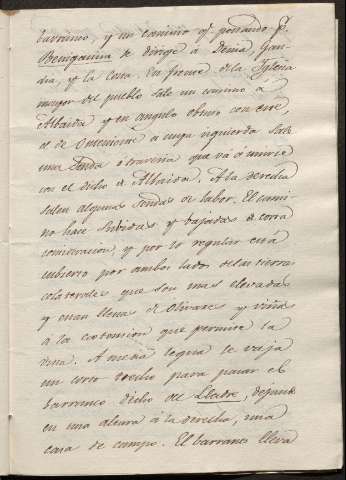 barranco, y un camino qe. pasando pr.
Benigánim se dirige á Denia, Gan-
dia, y la Costa. En frente de la Iglesia
mayor del pueblo sale un camino a
Albaida y en angulo obtuso con este,
el de Onteniente a cuya izquierda sale
una senda ó travesia que vá á unirse
con el dicho de Albaida. A la derecha
salen algunas sendas de labor. El cami-
no hace subidas y bajadas de corta
consideracion y por lo regular está
cubierto por ambos lados de las tierras
colaterales que son mas elevadas
y estan llenas de Olivares y viñas
á la extension que permite la
vista. A media legua se vaja
un corto trecho para pasar el
barranco dicho de Lladre, dejando
en una altura á la derecha, una
casa de campo. El barranco lleva